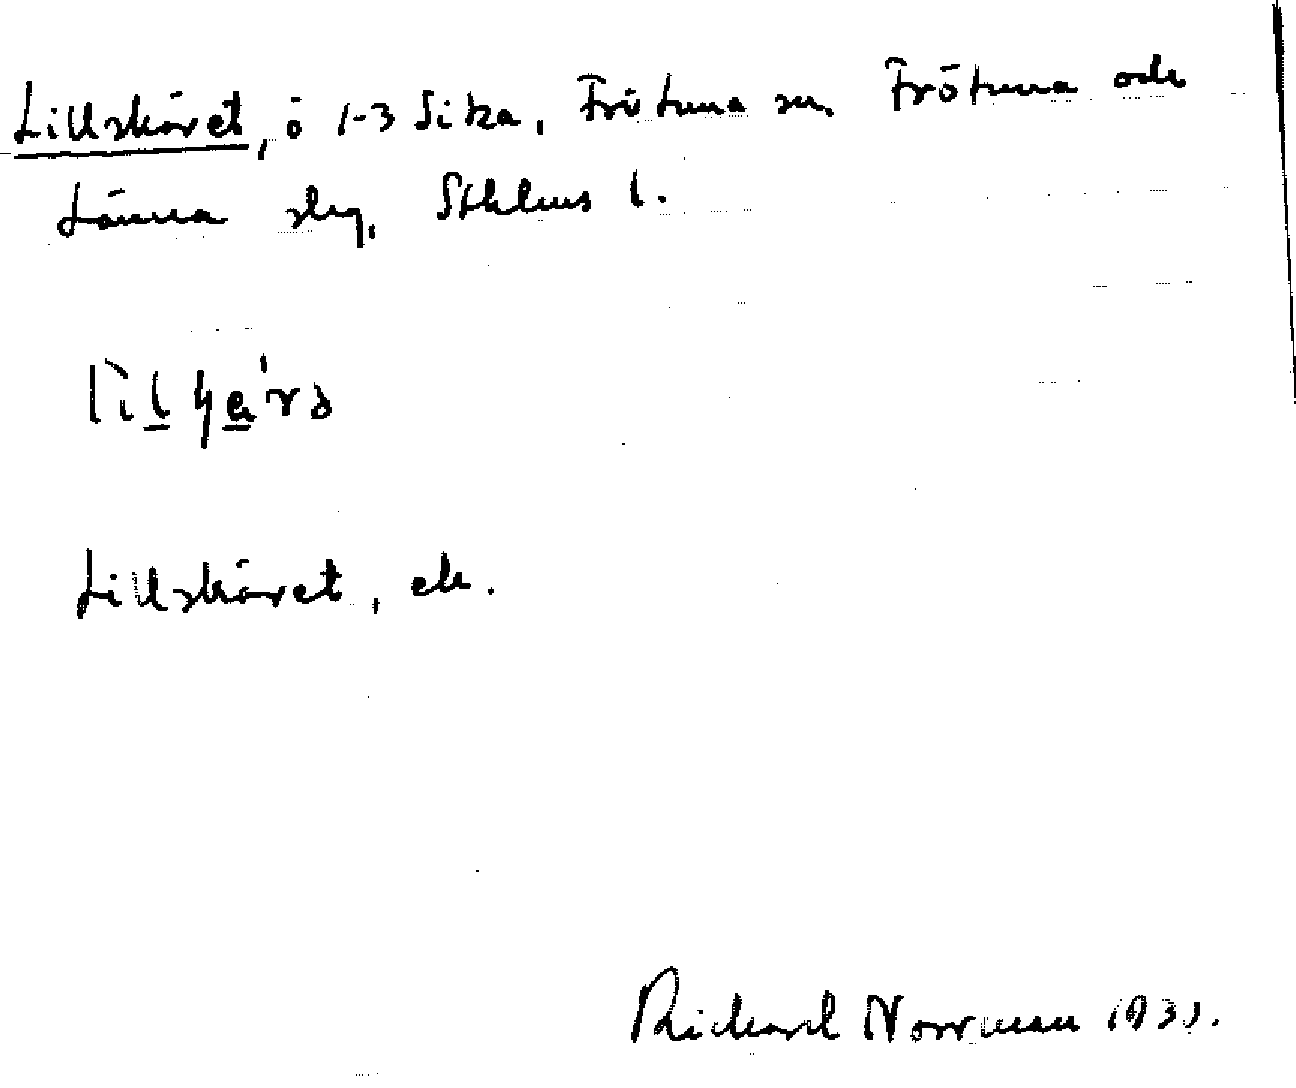 Lillskäret, ö 1-3 Sika, Frötuna sn, Frötuna och
Länna slg, Sthlms l.
Lillskäret, ek.
Richard Norrman